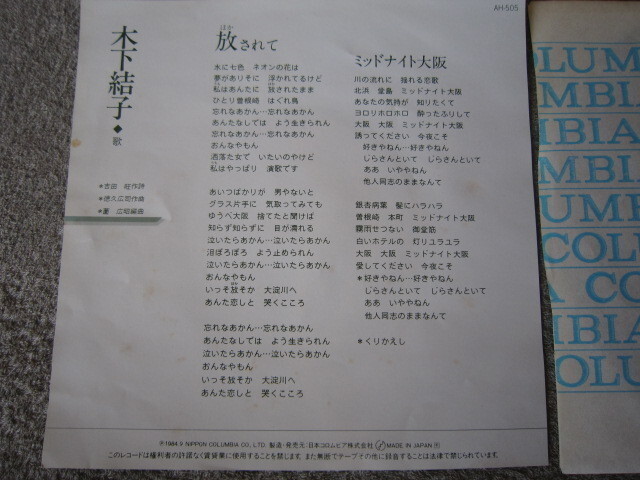 AH-505
木下結子◆歌
＊吉田 旺作詩
＊徳久広司作曲
＊薗 広昭編曲
放されて
ほか
水に七色 ネオンの花は
夢がありそに 浮かれてるけど
私はあんたに 放されたまま
ひとり曽根崎 はぐれ鳥
忘れなあかん…忘れなあかん
あんたなしでは よう生きられん
忘れなあかん…忘れなあかん
おんなやもん
洒落た女で いたいのやけど
私はやっぱり 演歌です
あいつばかりが 男やないと
グラス片手に 気取ってみても
ゆうべ大阪 捨てたと聞けば
知らず知らずに 目が濡れる
泣いたらあかん…泣いたらあかん
泪ぽろぽろ よう止められん
泣いたらあかん…泣いたらあかん
おんなやもん
いっそ放そか 大淀川へ
あんた恋しと 哭くこころ
忘れなあかん…忘れなあかん
あんたなしでは よう生きられん
泣いたらあかん…泣いたらあかん
おんなやもん
いっそ放そか 大淀川へ
あんた恋しと 哭くこころ
ミッドナイト大阪
川の流れに 揺れる恋歌
北浜 堂島 ミッドナイト大阪
あなたの気持が 知りたくて
ヨロリホロホロ 酔ったふりして
大阪 大阪 ミッドナイト大阪
誘ってください 今夜こそ
好きやねん…好きやねん
じらさんといて じらさんといて
ああ いややねん
他人同志のままなんて
銀杏病葉 髪にハラハラ
曽根崎 本町 ミッドナイト大阪
霧雨せつない 御堂筋
白いホテルの 灯りユラユラ
大阪 大阪 ミッドナイト大阪
愛してください 今夜こそ
＊好きやねん…好きやねん
じらさんといて じらさんといて
ああ いややねん
他人同志のままなんて
＊くりかえし
Ⓟ1984.9 NIPPON COLUMBIA CO., LTD. 製造・発売元/日本コロムビア株式会社 MADE IN JAPAN
このレコードは権利者の許諾なく賃貸業に使用することを禁じます。また無断でテープその他に録音することは法律で禁じられています。
OLUM
MBIA
BIA
COLU
UMB
COL
A CO
MBIA
OLU